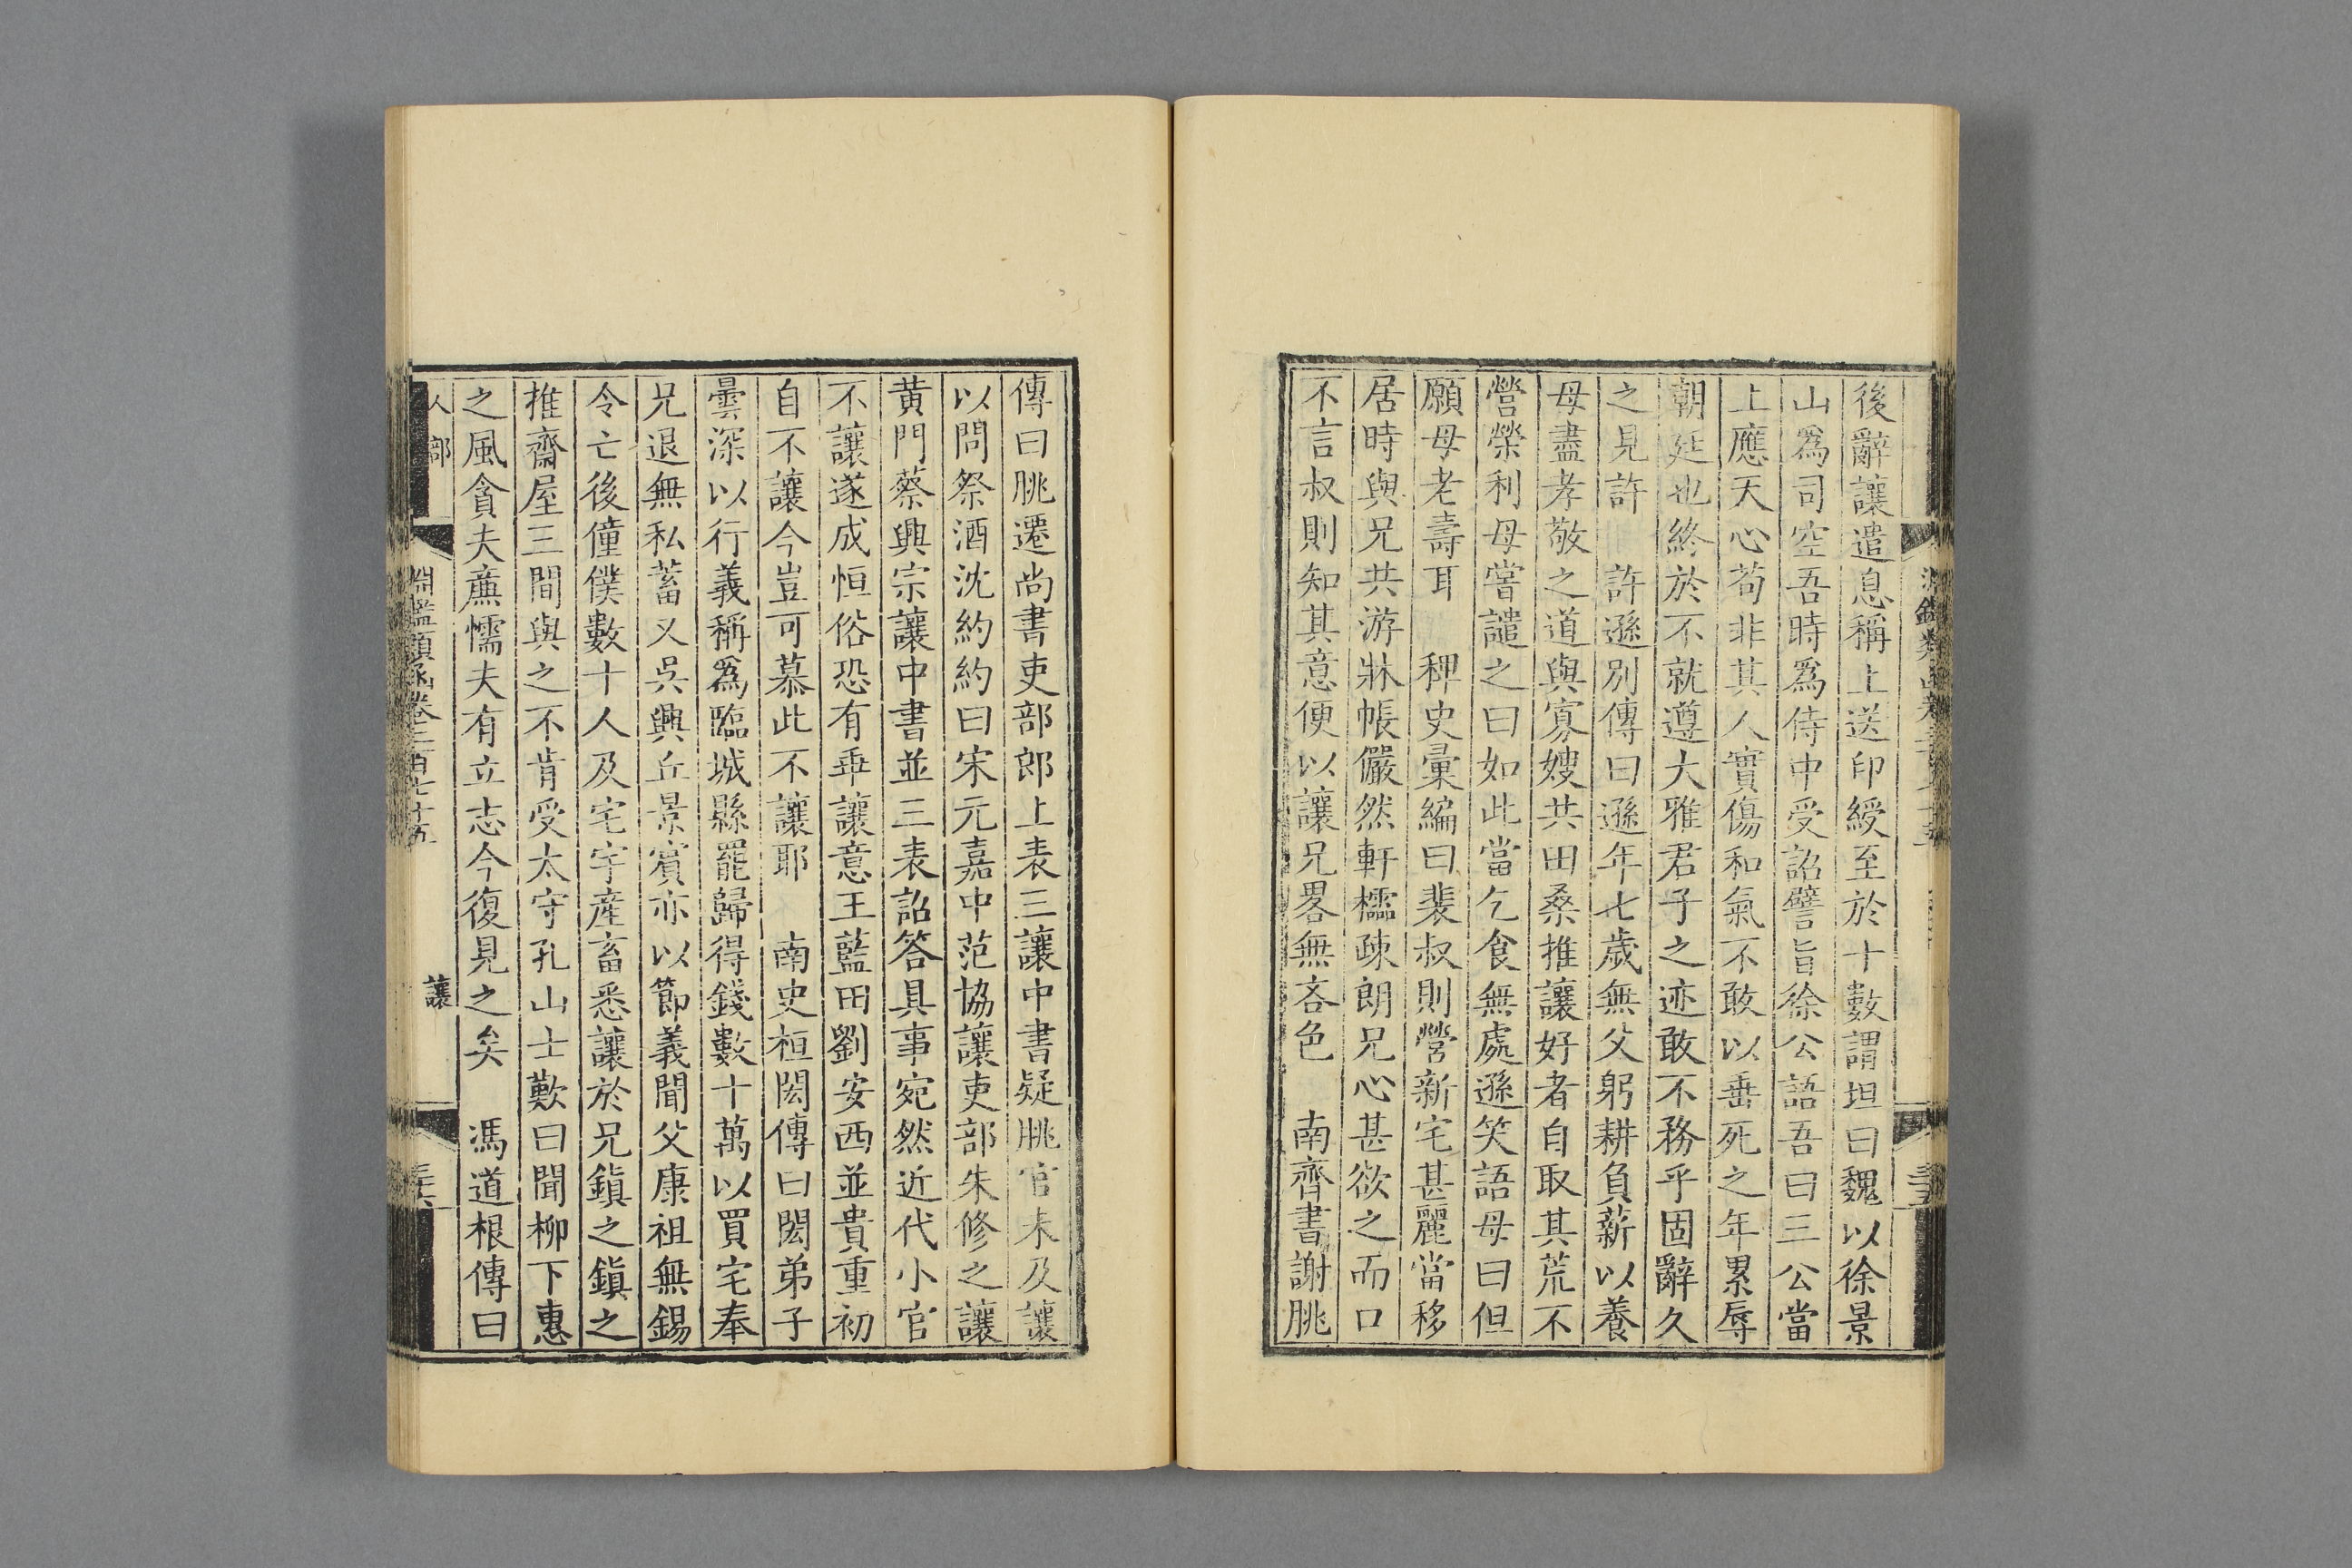 後辭讓遣息稱上送印綬至於十數謂坦曰魏以徐景
山爲司空吾時爲侍中受詔譬旨徐公語吾曰三公當
上應天心苟非其人實傷和氣不敢以垂死之年累辱
朝廷也終於不就遵大雅君子之迹敢不務乎固辭久
之見許　許遜別傳曰遜年七歲無父躬耕負薪以養
母盡孝敬之道與寡嫂共田桑推讓好者自取其荒不
營榮利母嘗譴之曰如此當乞食無處遜笑語母曰但
願母老壽耳　稗史彙編曰裴叔則營新宅甚麗當移
居時與兄共游牀帳儼然軒櫺疎朗兄心甚欲之而口
不言叔則知其意便以讓兄畧無吝色　南齊書謝朓
傳曰朓遷尚書吏部郎上表三讓中書疑朓官未及讓
以問祭酒沈約約曰宋元嘉中范協讓吏部朱修之讓
黄門蔡興宗讓中書並三表詔答具事宛然近代小官
不讓遂成恒俗恐有乖讓意王藍田劉安西並貴重初
自不讓今豈可慕此不讓耶　南史桓閎傳曰閎弟子
曇深以行義稱爲臨城縣罷歸得錢數十萬以買宅奉
兄退無私蓄又吳興丘景賓亦以節義聞父康祖無錫
令亡後僮僕數十人及宅宇産畜悉讓於兄鎭之鎭之
推齋屋三間與之不肯受太守孔山士歎曰聞柳下惠
之風貪夫㢘懦夫有立志今復見之矣　馮道根傳曰
人部　淵鑑類函卷二百七十五　讓